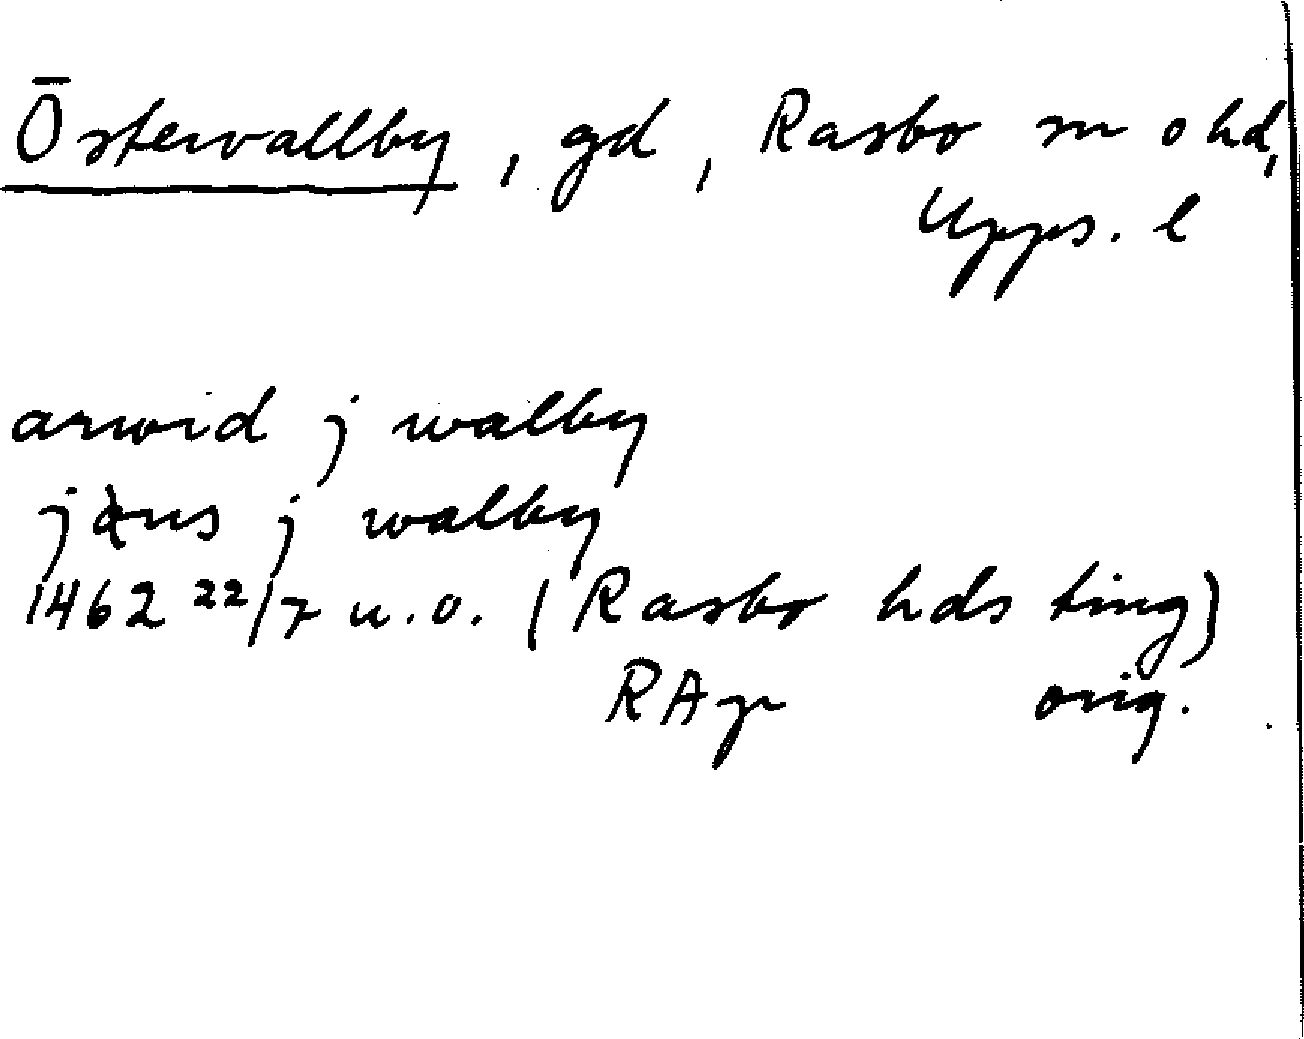 Östervallby, gd, Rasbo sn o hd,
Upps. l
arwid j walby
jxns j walby
1462 22/7 u.o. (Rasbo hds ting)
RAp orig.